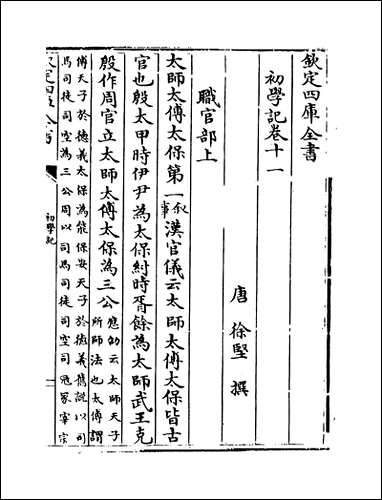 欽定四庫全書
初學記卷十一
唐 徐堅 撰
職官部上
太師太傅太保第一敘事漢官儀云太師太傅太保皆古
官也殷太甲時伊尹為太保紂時胥餘為太師武王克
殷作周官立太師太傅太保為三公應劭云太師天子
所師法也太傅謂
傅天子於德義太保為能保安天子於德義舊說以司
馬司徒司空為三公周以司馬司徒司空司冦冢宰宗
初學記